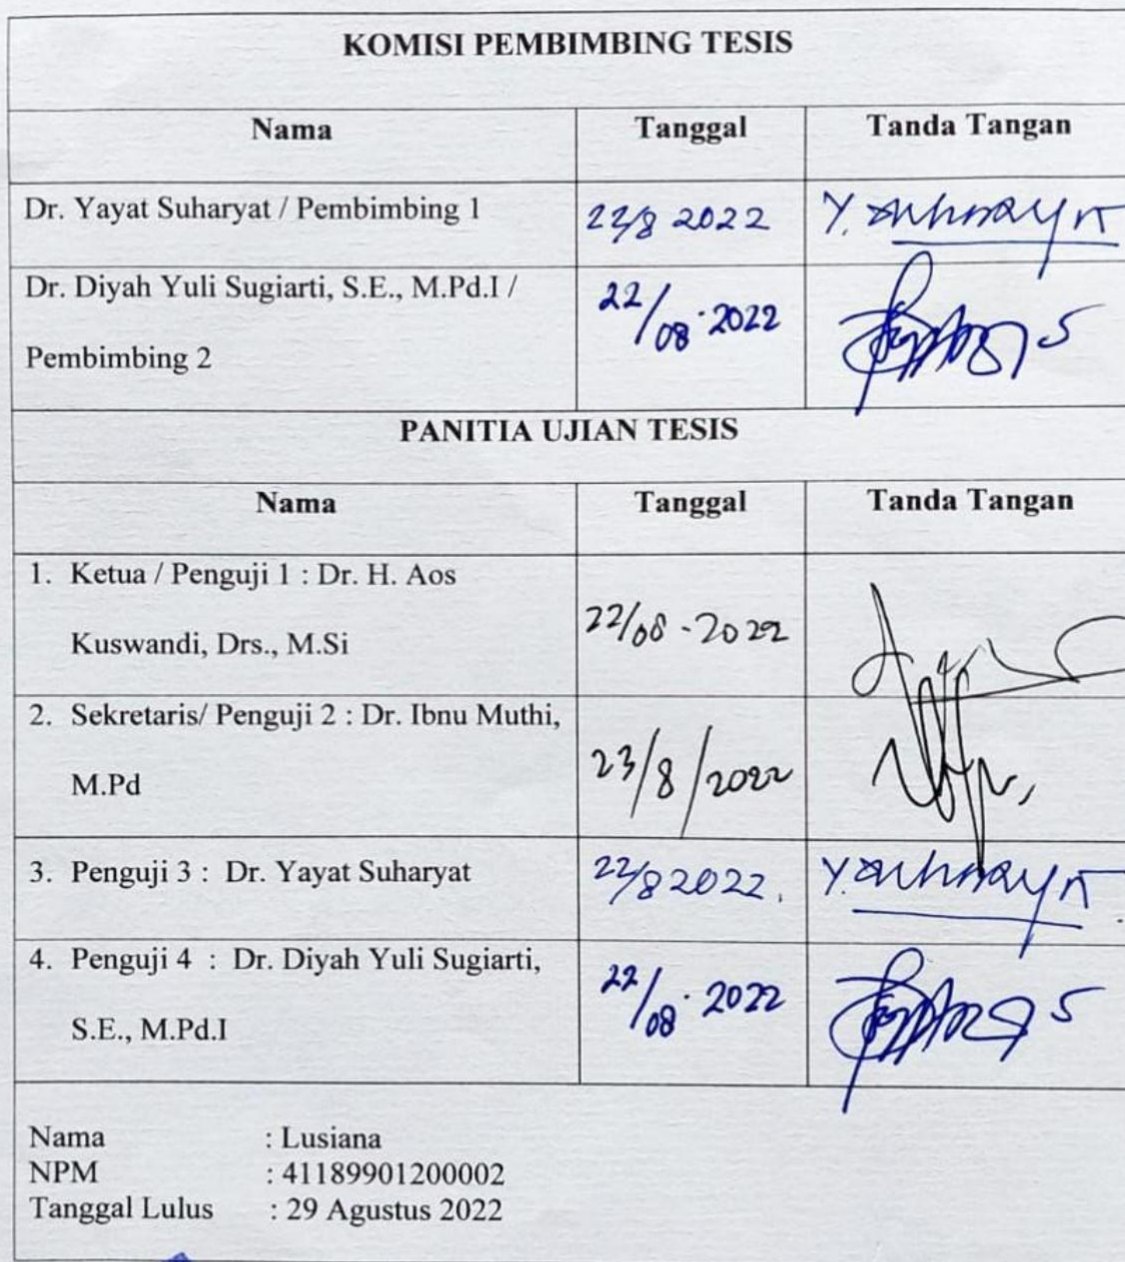 KOMISI PEMBIMBING TESIS
Nama Tanggal Tanda Tangan
Dr. Yayat Suharyat / Pembimbing 1 22/8 2022 Y. Suharyat
Dr. Diyah Yuli Sugiarti, S.E., M.Pd.I /
Pembimbing 2 22/08 · 2022
PANITIA UJIAN TESIS
Nama Tanggal Tanda Tangan
1. Ketua / Penguji 1 : Dr. H. Aos
Kuswandi, Drs., M.Si 22/08 - 2022
2. Sekretaris/ Penguji 2 : Dr. Ibnu Muthi,
M.Pd 23/8/2022
3. Penguji 3 : Dr. Yayat Suharyat 22/8 2022. Y. Suharyat
4. Penguji 4 : Dr. Diyah Yuli Sugiarti,
S.E., M.Pd.I 22/08 · 2022
Nama : Lusiana
NPM : 41189901200002
Tanggal Lulus : 29 Agustus 2022